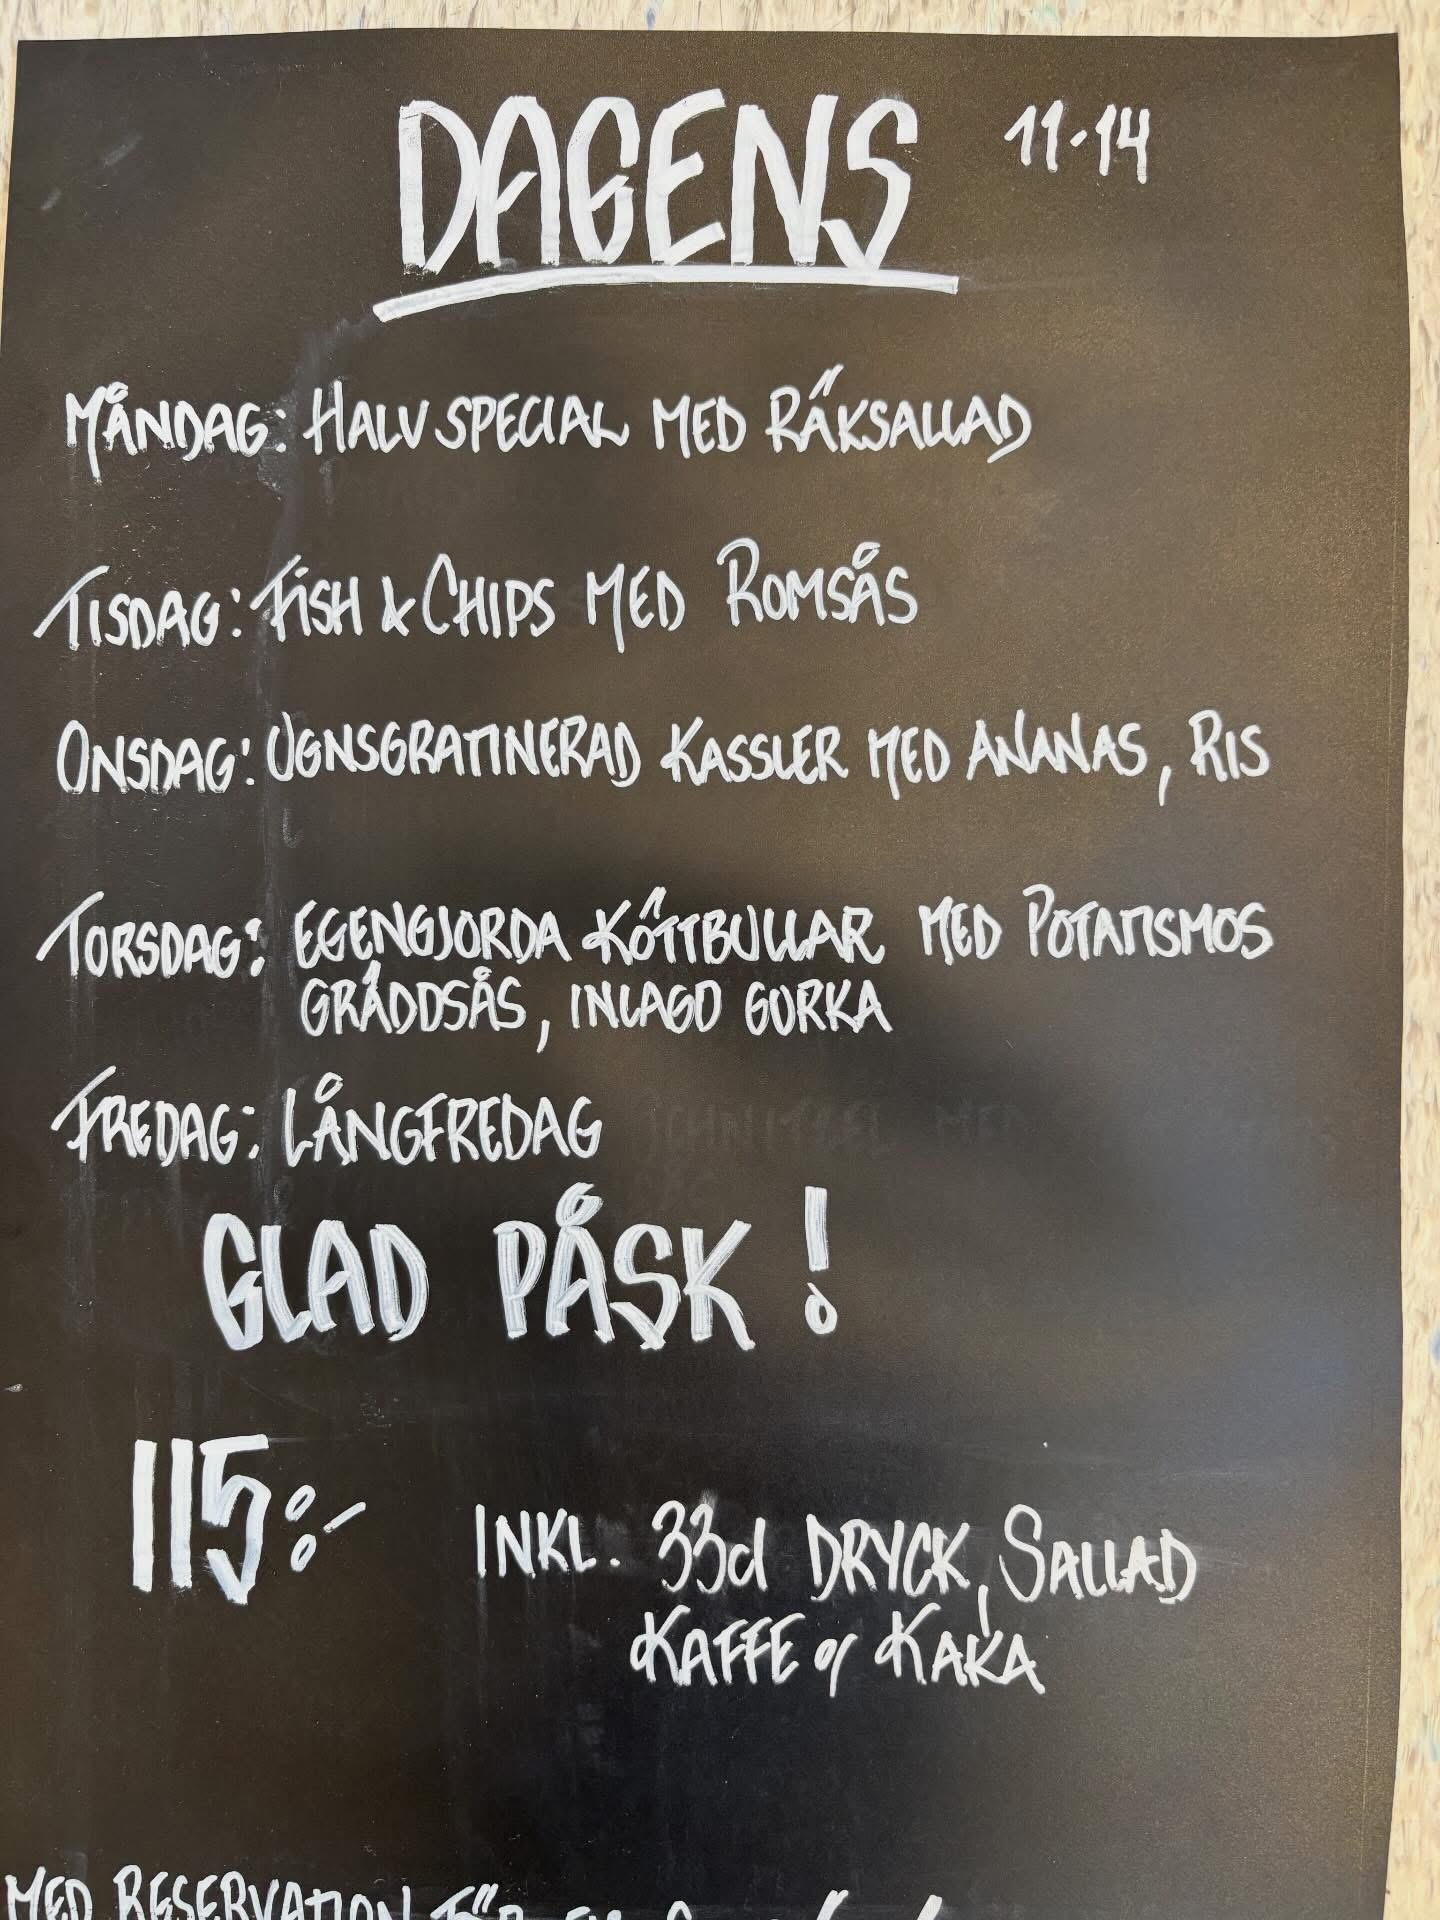 DAGENS 11-14
MÅNDAG: HALV SPECIAL MED RÄKSALLAD
TISDAG: FISH & CHIPS MED ROMSÅS
ONSDAG: UGNSGRATINERAD KASSLER MED ANANAS, RIS
TORSDAG: EGENGJORDA KÖTTBULLAR MED POTATISMOS
GRÄDDSÅS, INLAGD GURKA
FREDAG: LÅNGFREDAG
GLAD PÅSK!
115:-
INKL. 33cl DRYCK, SALLAD
KAFFE o KAKA
MED RESERVATION FÖR